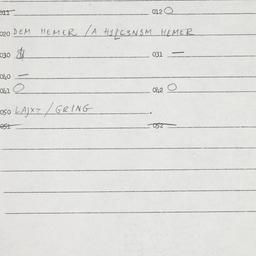 011 — 012 O
020 DEM HEMER / A HILGENSM HEMER
030 $ 031 —
040 —
041 O 042 O
050 LAJXT / GRING .
051 052